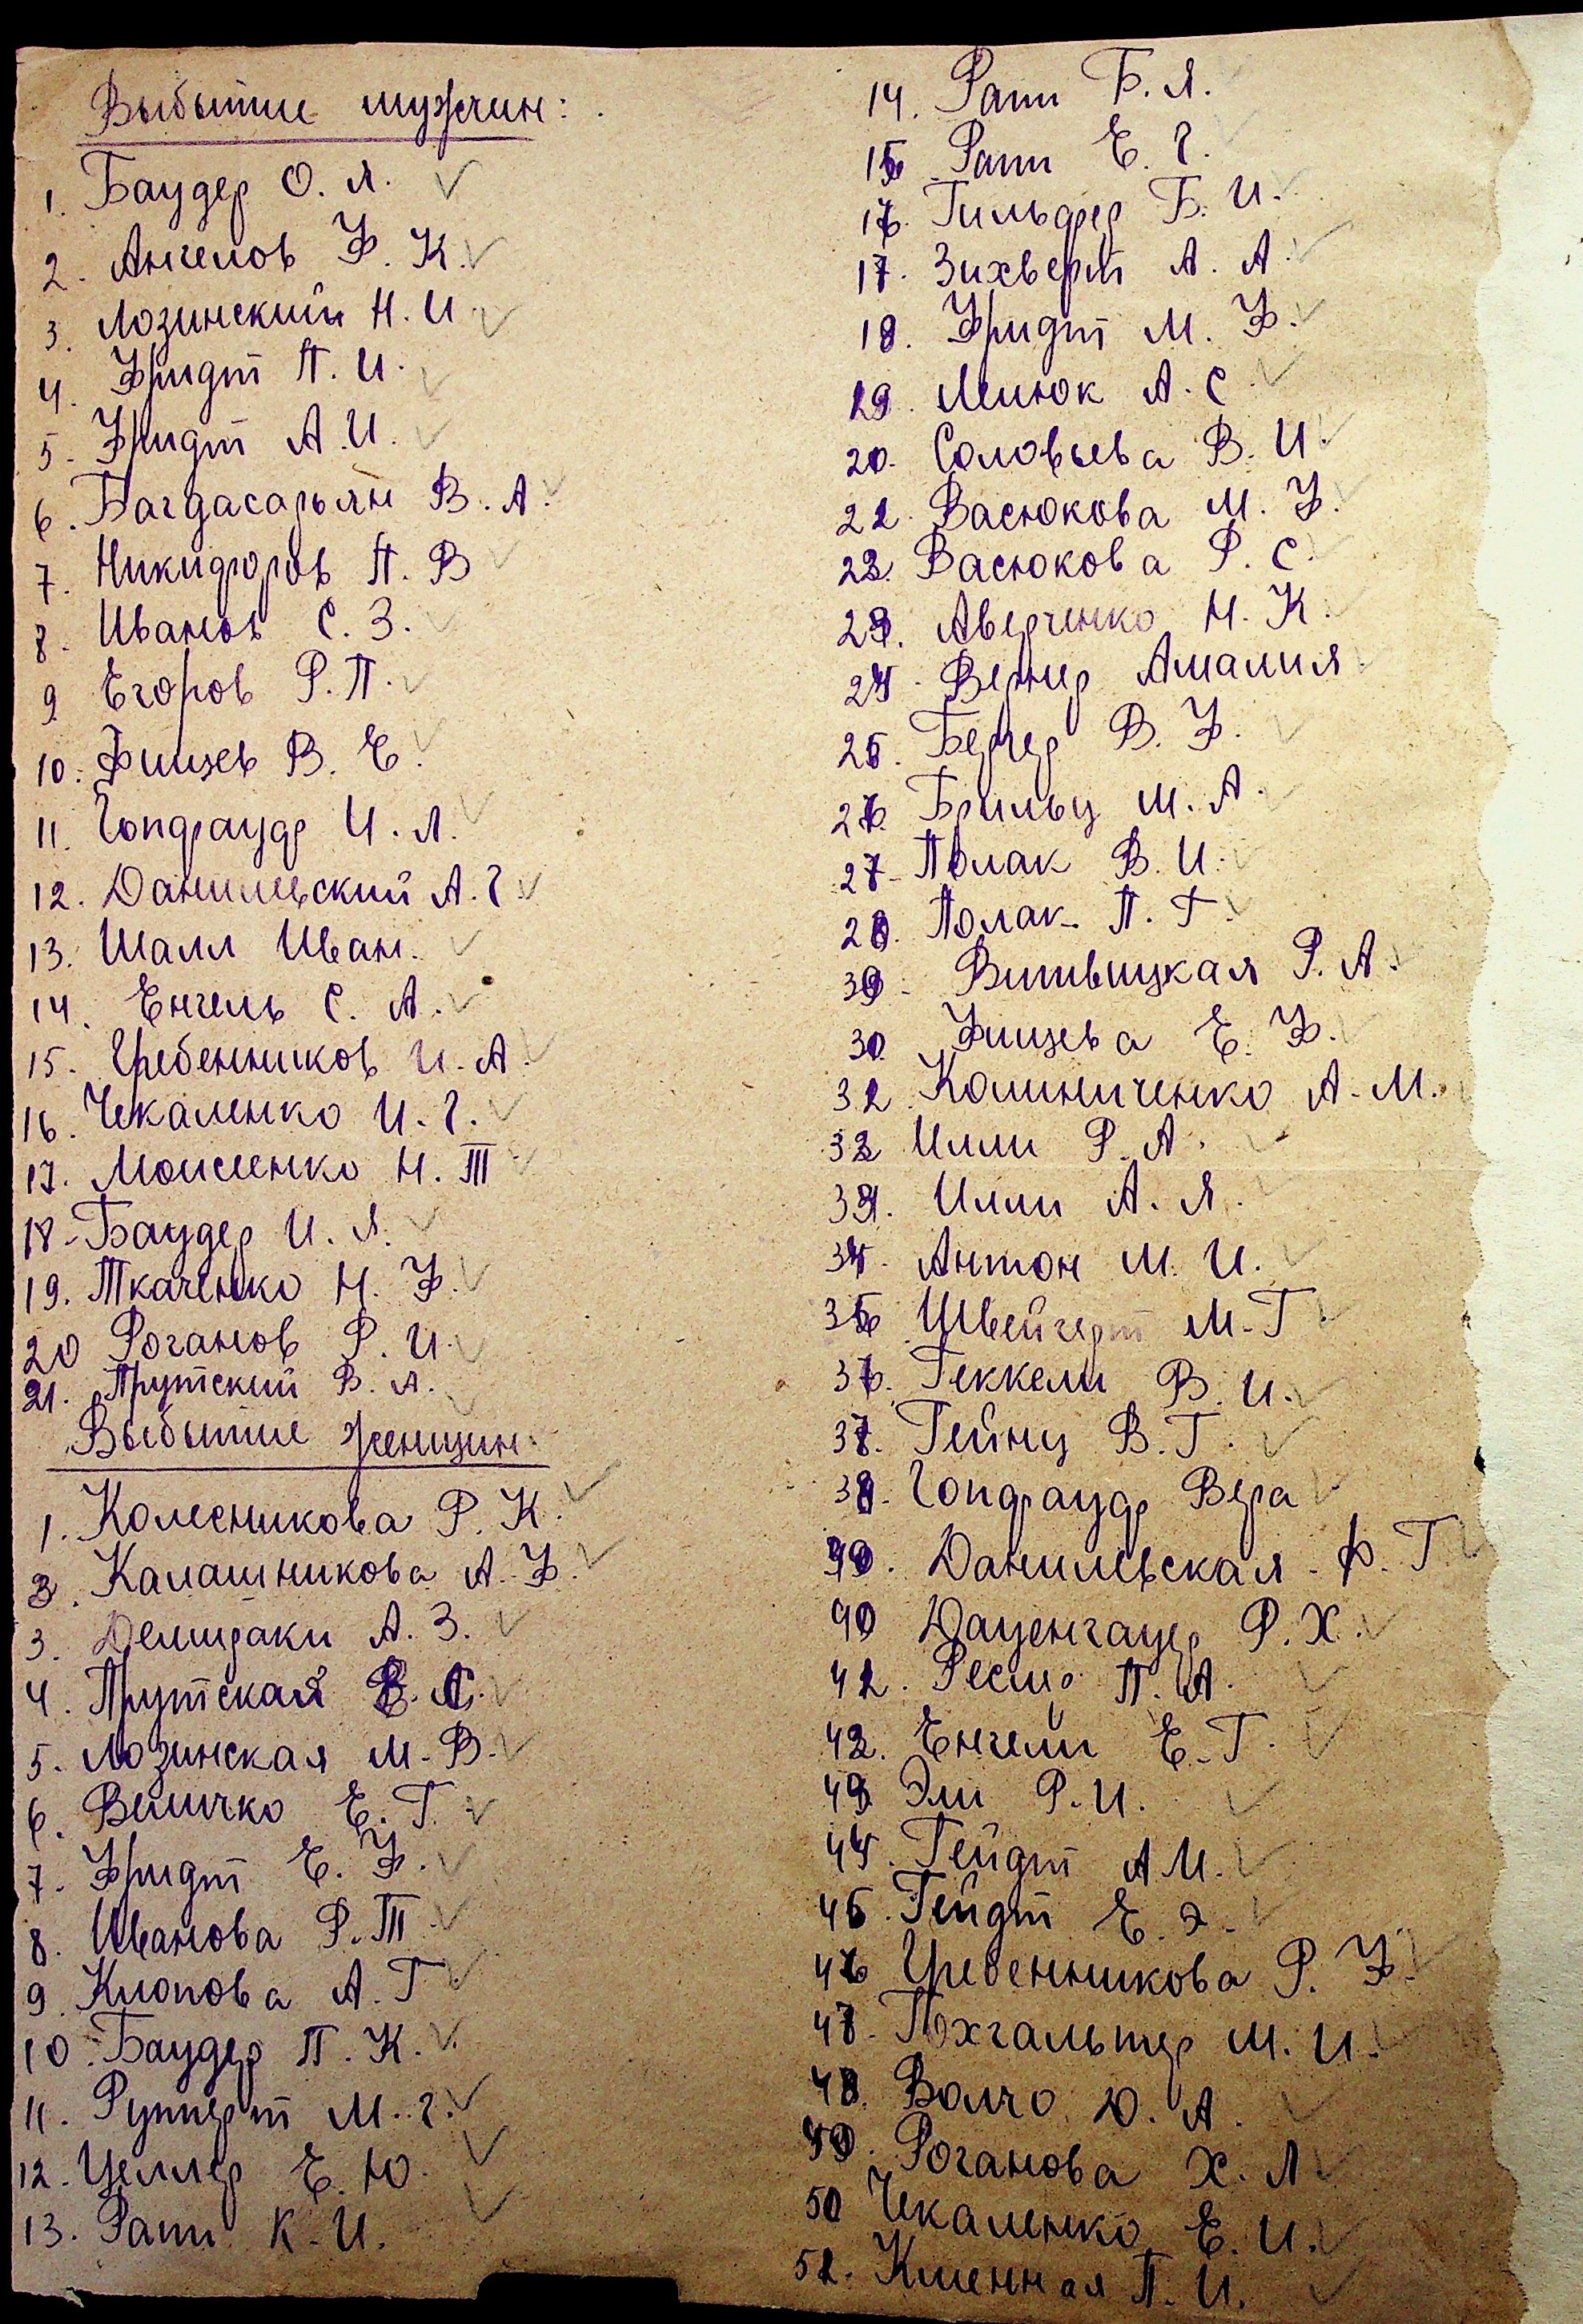 Выбытие мужчин:
1. Баудер О. Я.
2. Ангелов Ф. К.
3. Лозинский Н. И.
4. Фридт П. И.
5. Фридт А. И.
6. Багдасарьян В. А.
7. Никифоров П. В
8. Иванов С. З.
9 Егоров Р. П.
10. Фишев В. Е.
11. Гопфауф И. Л.
12. Данилевский А. Г.
13. Шалл Иван.
14. Енгель С. А.
15. Гребенников И. А.
16. Чекаленко И. Г.
17. Моисеенко Н. Т
18. Баудер И. Я.
19. Ткаченко Н. Ф.
20 Роганов Р. И.
21. Прутский В. А.
Выбытие женщин.
1. Колесникова Р. К.
2. Калашникова А. Ф.
3. Демираки А. З.
4. Прутская В. С.
5. Лозинская М. В.
6. Величко Е. Г.
7. Фридт Е. Ф.
8. Иванова Р. Т
9. Клопова А. Г
10. Баудер П. К.
11. Рупперт М. Г.
12. Целлер Е. Ю.
13. Рати К. И.
14. Рати Б. Я.
15. Рати Е. Г.
16. Гильфер Б. И.
17. Зихверт А. А.
18. Фридт М. Ф.
19. Милюк А. С
20. Соловьева В. И.
21. Васюкова М. Ф.
22. Васюкова Р. С.
23. Аверченко Н. К.
24. Вернер Амалия
25. Бергер В. Ф.
26. Брильц М. А.
27. Полак В. И.
28. Полак П. Г.
39. Витвицкая Р. А.
30. Фишева Е. Ф.
31. Калиниченко А. М.
32 Илли Р. А.
33. Илли А. Я.
34. Антон М. И.
35 Швейгерт М. Г
36. Геккели В. И.
37. Гейнц В. Г.
38. Гопфауф Вера
39. Данилевская Ф. Г
40 Дауенгауер Р. Х.
41. П. А.
42. Енгели Е. Г.
43 Эли Р. И.
44. Гейдт А М.
45. Гейдт Е. Э.
46 Гребенникова Р. Ф.
47. Похгальтер М. И.
48. Волчо Ю. А.
49. Роганова Х. Л
50 Чекаленко Е. И.
51. П. И.